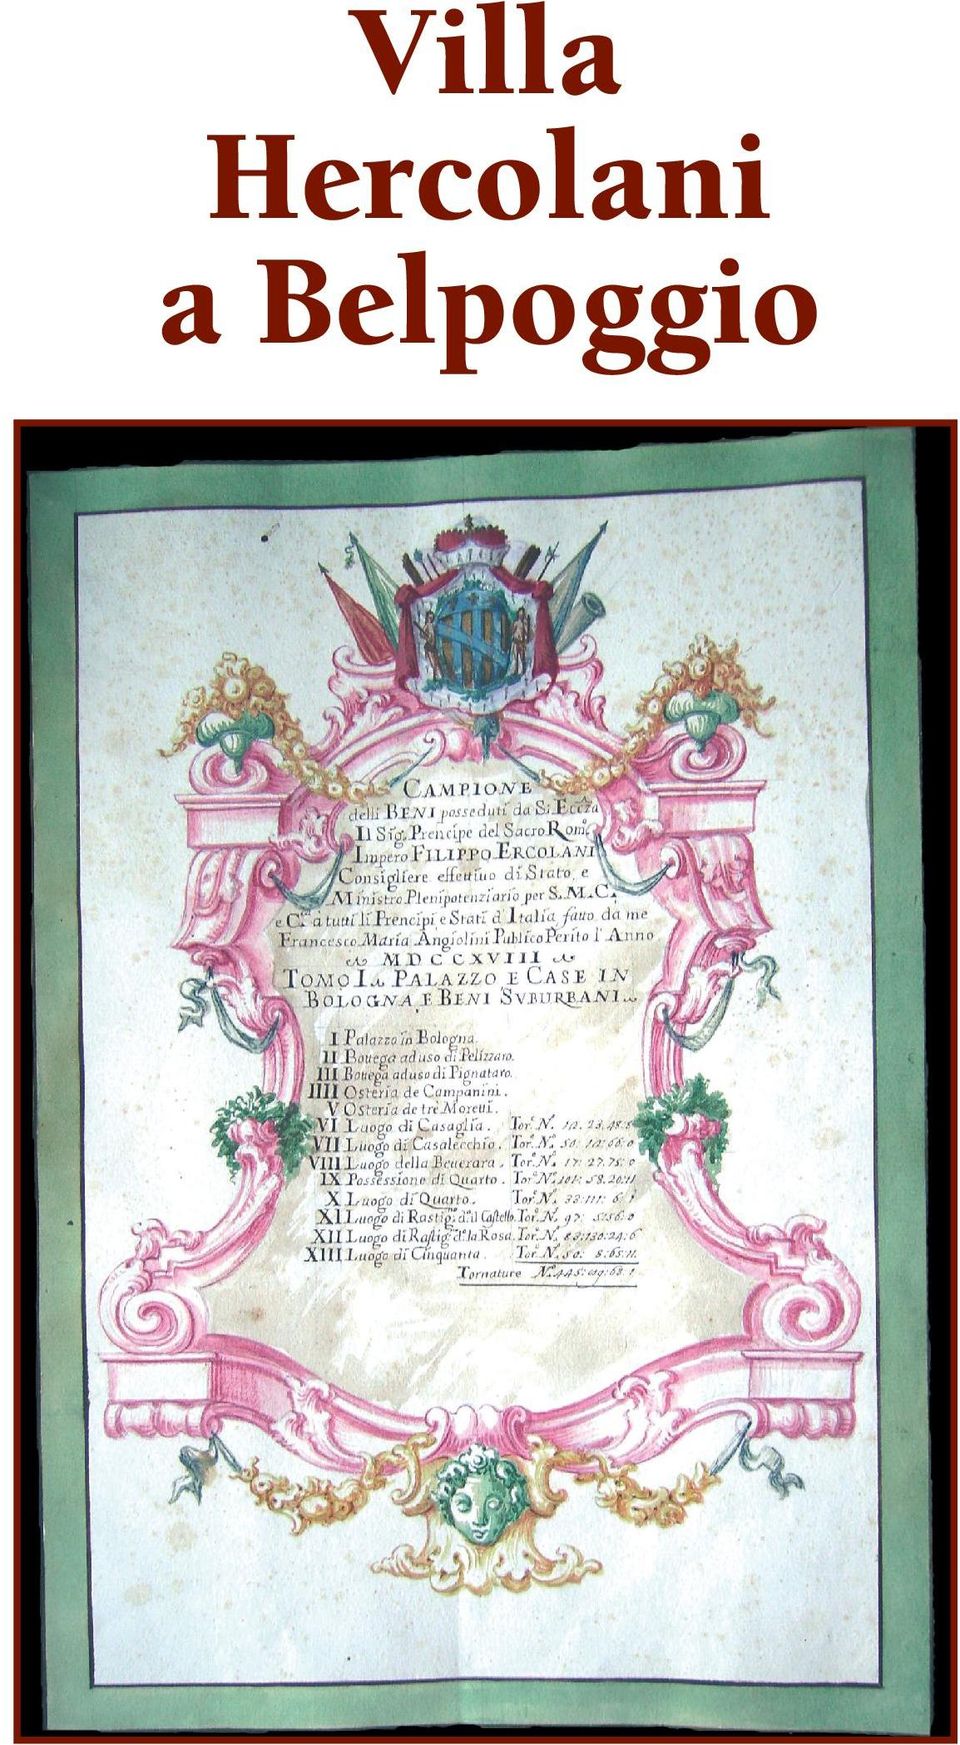 Villa
Hercolani
a Belpoggio
CAMPIONE
delli BENI posseduti da S. Eccza
Il Sig. Prencipe del Sacro Rom.
Impero FILIPPO ERCOLANI
Consigliere effettiuo di Stato, e
Ministro Plenipotenziario per S. M. C.
e C. à tutti li Prencipi, e Stati d'Italia fatto da me
Francesco Maria Angiolini Publico Perito l'Anno
MDCCXVIII
TOMO I. PALAZZO E CASE IN
BOLOGNA, E BENI SVBURBANI.
I Palazzo in Bologna.
II Bottega ad uso di Pelizzaro.
III Bottega ad uso di Pignataro.
IIII Osteria de Campanini.
V Osteria de trè Moretti.
VI Luogo di Casaglia. Tor. N. 12. 23. 48:8
VII Luogo di Casalecchio. Tor. N. 50: 12:66:0
VIII Luogo della Beuerara. Tor. N. 17: 27. 75: 0
IX Possessione di Quarto. Tor. N. 101: 58. 20:11
X Luogo di Quarto. Tor. N. 33:111: 6:
XI Luogo di Rastig. d. il Castello. Tor. N. 97:
XII Luogo di Rastig. d. la Rosa. Tor. N. 83:130:24:6
XIII Luogo di Cinquanta. Tor. N. 50: 8:65:11.
Tornature N. 445: